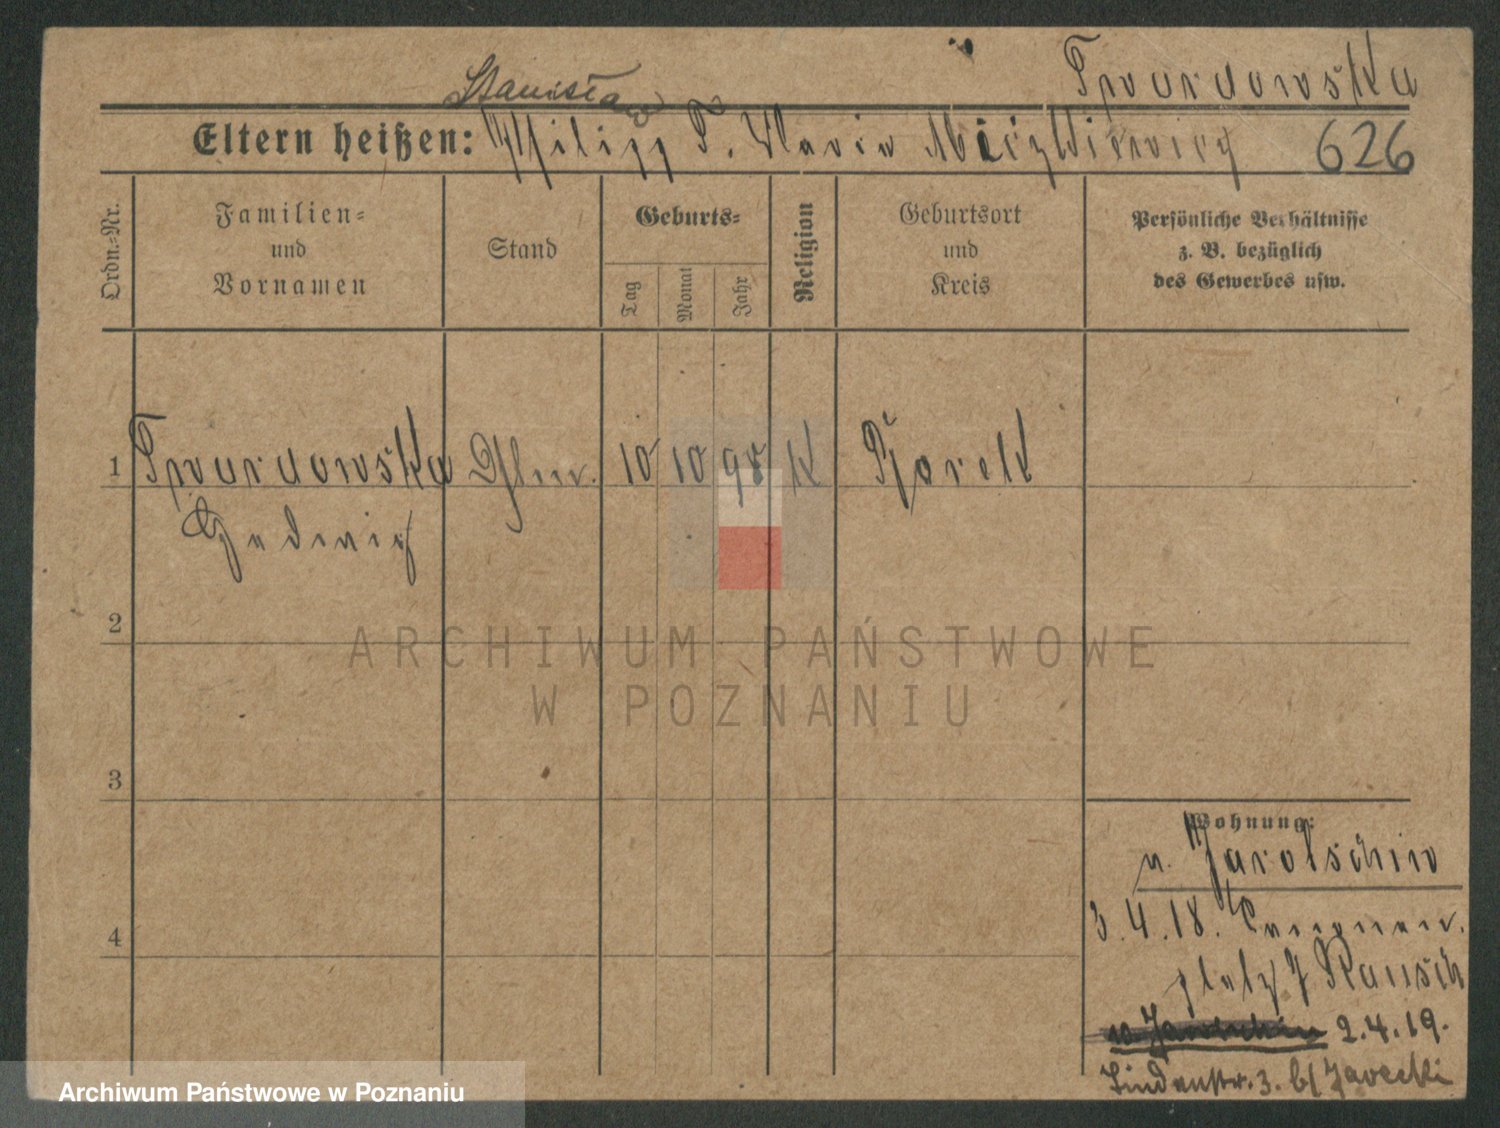 Twardowska
Stanisław
Eltern heißen: Philipp T. Maria
626
Ordn.-Nr.
Familien-
und
Vornamen
Stand
Geburts-
Tag
Monat
Jahr
Religion
Geburtsort
und
Kreis
Persönliche Verhältnisse
z. B. bezüglich
des Gewerbes usw.
1 Twardowska 10 10 98 K
Hedwig
2
3
4
Wohnung:
n. Jarotschin
3.4.18.
platz 7 Rausch
2.4.19.
Lindenstr. 3. b/ Jarecki
ARCHIWUM PAŃSTWOWE
W POZNANIU
Archiwum Państwowe w Poznaniu